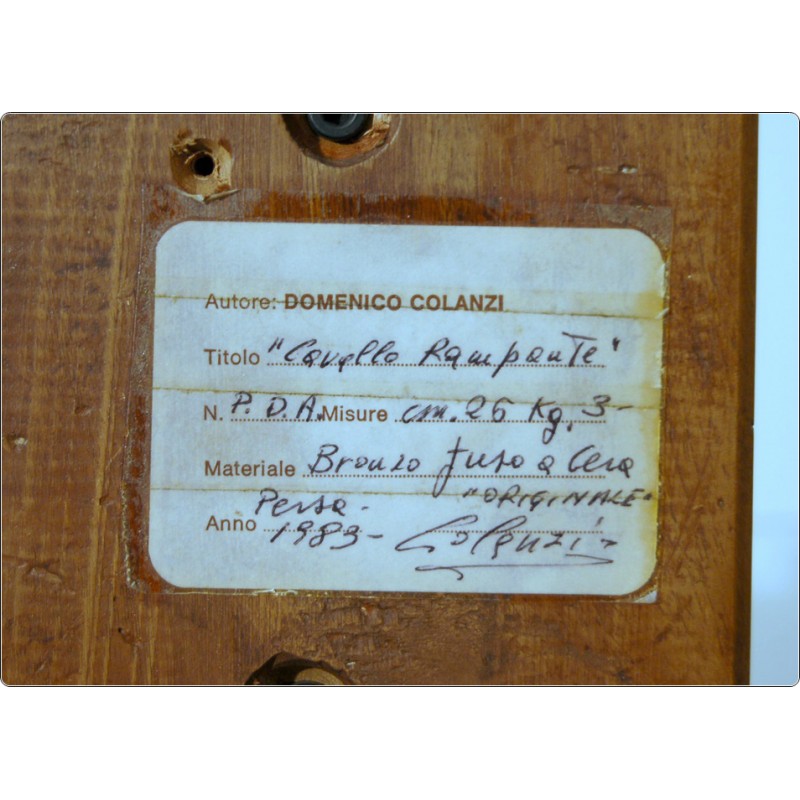 Autore: DOMENICO COLANZI
Titolo "Cavallo Rampante"
N. P.D.A. Misure cm. 26 Kg. 3-
Materiale Bronzo fuso a Cera
Persa. "ORIGINALE"
Anno 1989- Colanzi